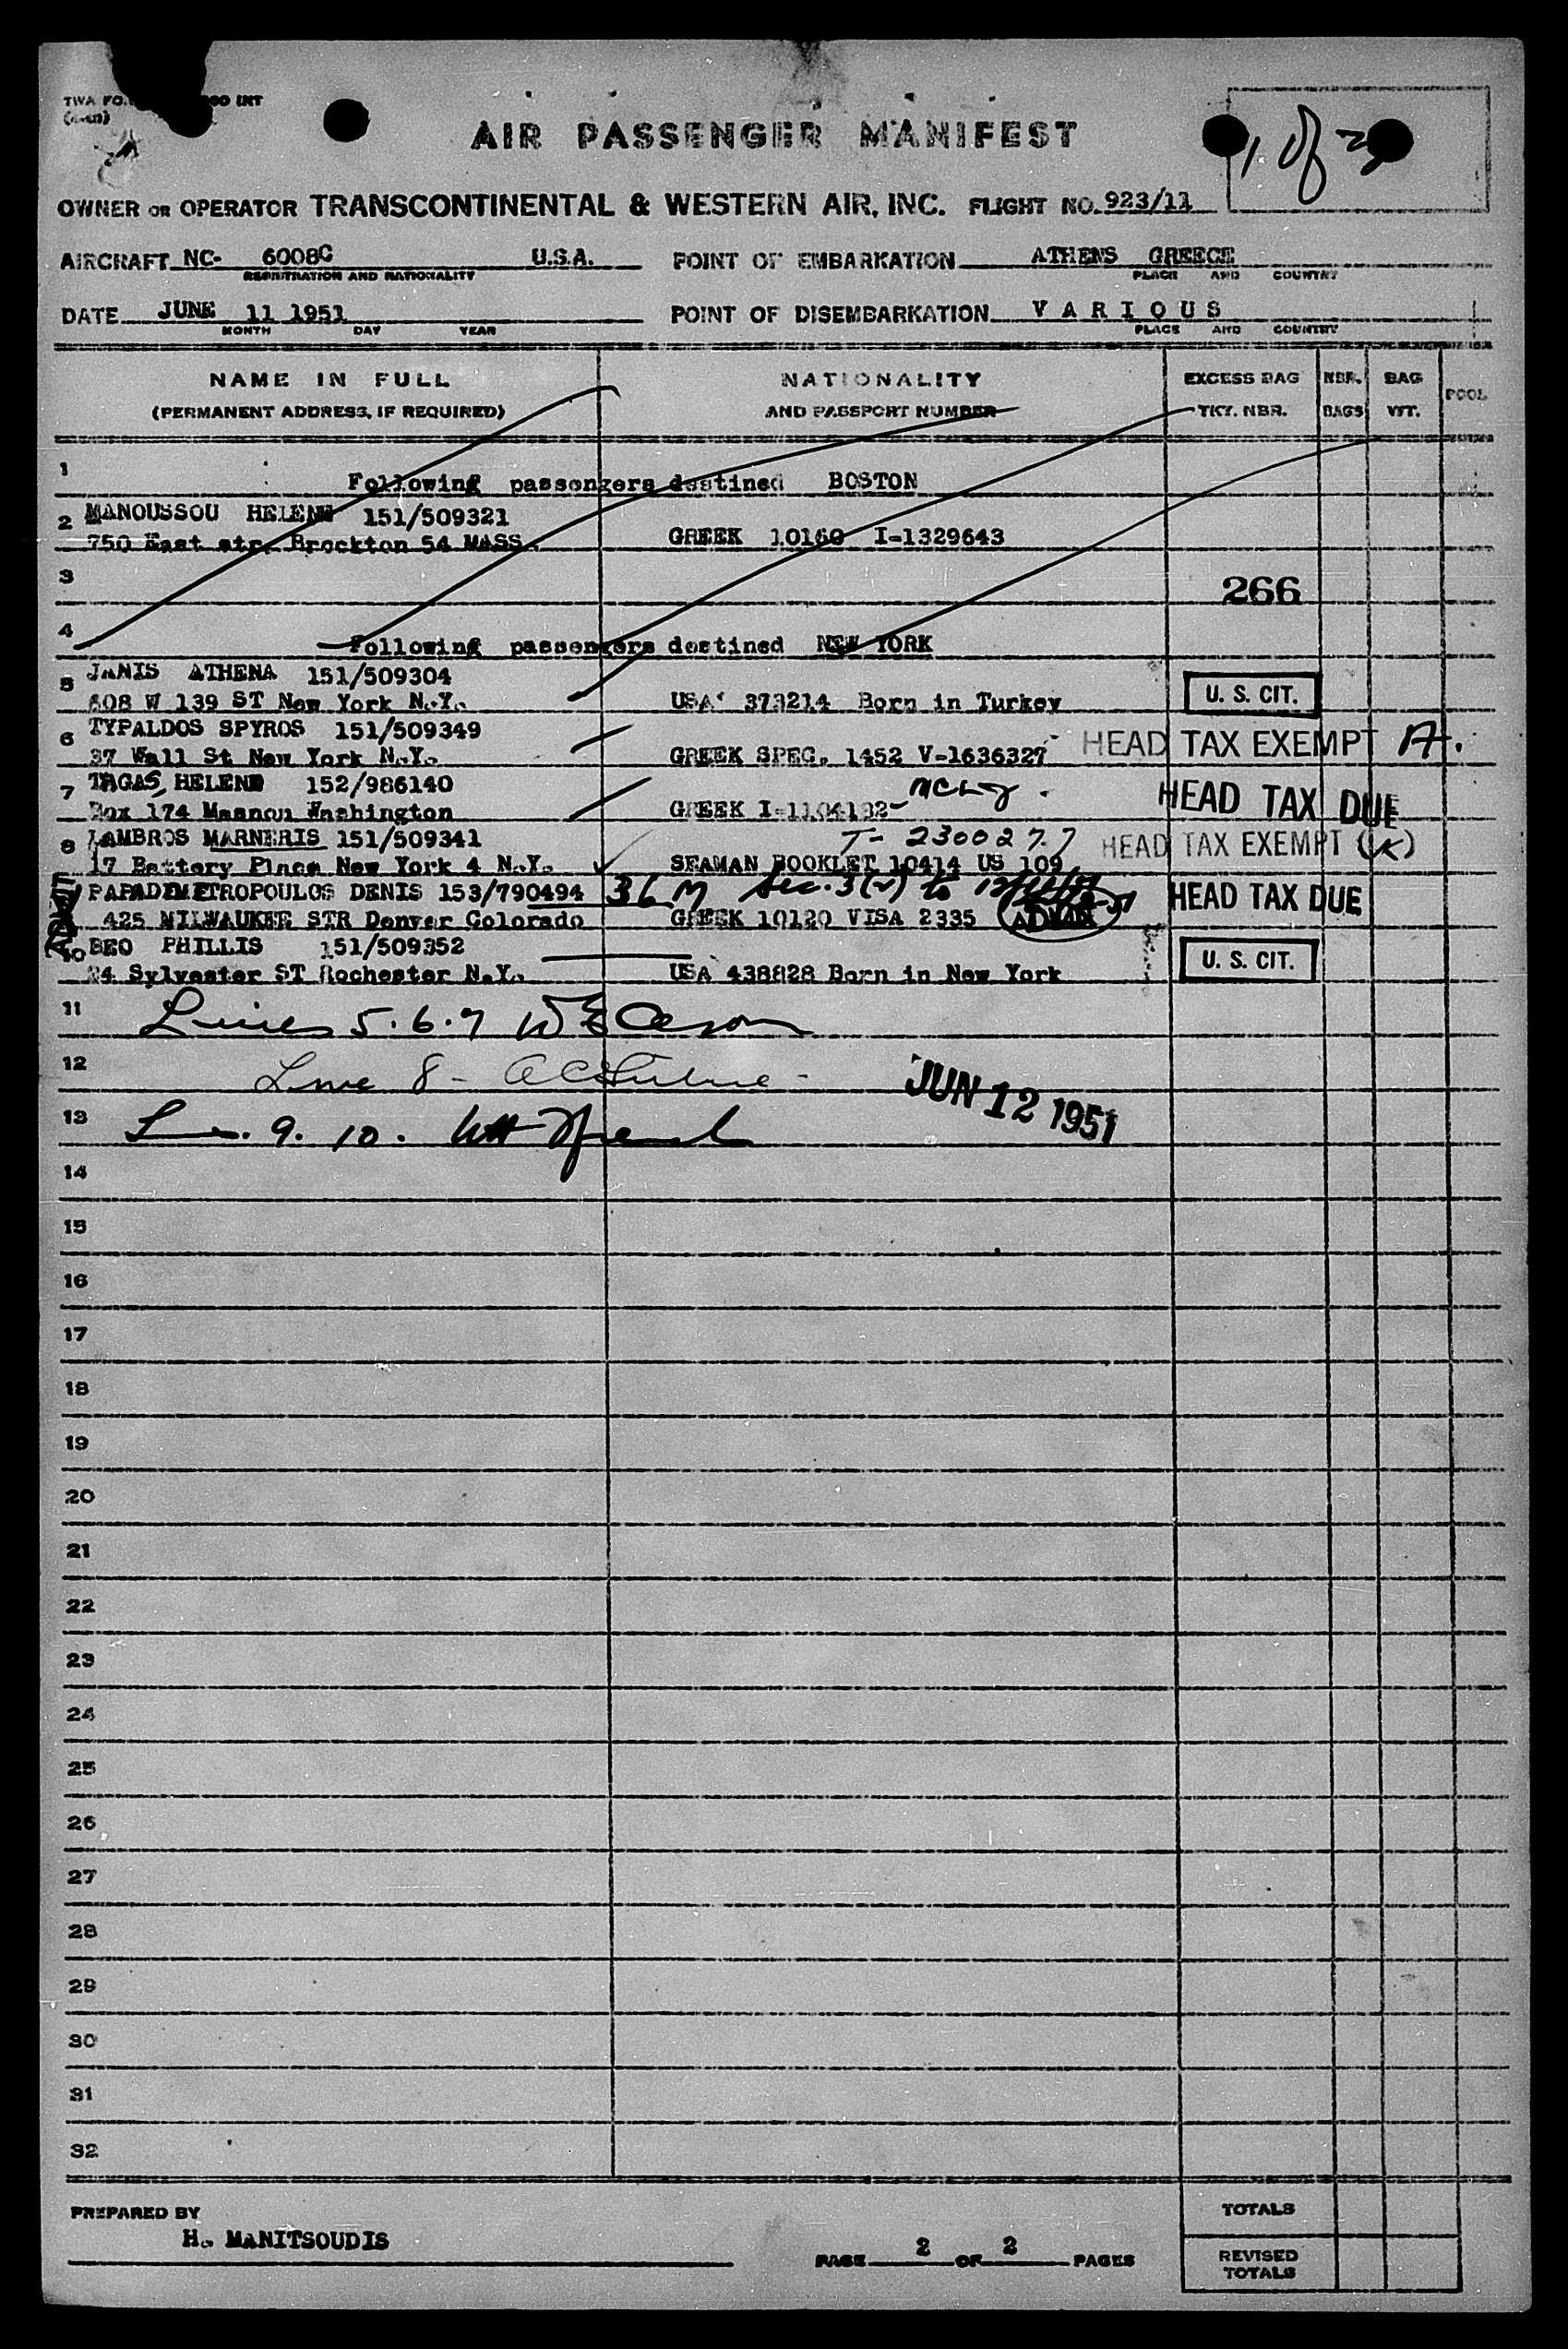 TWA FO
AIR PASSENGER MANIFEST
1 of
OWNER OR OPERATOR TRANSCONTINENTAL & WESTERN AIR, INC. FLIGHT NO. 923/11
AIRCRAFT NC- 6008C U.S.A. POINT OF EMBARKATION ATHENS GREECE
REGISTRATION AND NATIONALITY PLACE AND COUNTRY
DATE JUNE 11 1951 POINT OF DISEMBARKATION V A R I O U S
MONTH DAY YEAR PLACE AND COUNTRY
NAME IN FULL NATIONALITY EXCESS BAG NBR. BAG POOL
(PERMANENT ADDRESS, IF REQUIRED) AND PASSPORT NUMBER TKT. NBR. BAGS WT.
1 Following passengers destined BOSTON
2 MANOUSSOU HELENE 151/509321
750 East str. Brockton 54 MASS. GREEK 10160 I-1329643
3 266
4 Following passengers destined NEW YORK
5 JANIS ATHENA 151/509304
608 W 139 ST New York N.Y. USA 373214 Born in Turkey U. S. CIT.
6 TYPALDOS SPYROS 151/509349
37 Wall St New York N.Y. GREEK SPEC. 1452 V-1636327 HEAD TAX EXEMPT A.
7 TAGAS, HELENE 152/986140
Box 174 Washington GREEK HEAD TAX DUE
8 LAMBROS MARNERIS 151/509341 T- 2300277 HEAD TAX EXEMPT (K)
17 Battery Place New York 4 N.Y. SEAMAN BOOKLET 10414 US 109
PAPADIMETROPOULOS DENIS 153/790494 36 M Sec. 3(2) to HEAD TAX DUE
425 MILWAUKEE STR Denver Colorado GREEK 10120 VISA 2335
10 BEO PHILLIS 151/509352
24 Sylvester ST Rochester N.Y. USA 438828 Born in New York U. S. CIT.
11 Lines 5.6.7
12 Line 8 -
JUN 12 1951
13 9. 10.
14
15
16
17
18
19
20
21
22
23
24
25
26
27
28
29
30
31
32
PREPARED BY TOTALS
H. MANITSOUDIS
PAGE 2 OF 2 PAGES REVISED
TOTALS